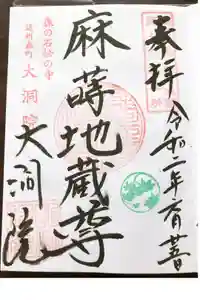 奉拝
令和二年有菩
麻蒔地蔵尊
森の石松の寺
遠州森町 大洞院
大洞院